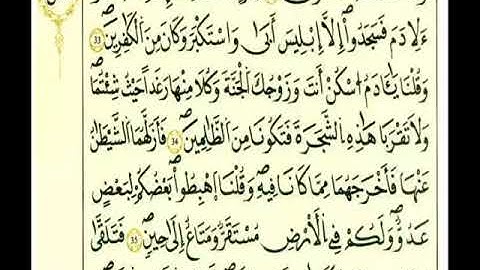 ءَلِادَمَ فَسَجَدُوٓاْ إِلَّآ إِبْلِيسَ أَبَىٰ وَاسْتَكْبَرَ وَكَانَ مِنَ الْكَٰفِرِينَ 33
وَقُلْنَا يَٰٓـَٔادَمُ اسْكُنْ أَنتَ وَزَوْجُكَ الْجَنَّةَ وَكُلَا مِنْهَا رَغَداً حَيْثُ شِئْتُمَا
وَلَا تَقْرَبَا هَٰذِهِ الشَّجَرَةَ فَتَكُونَا مِنَ الظَّٰلِمِينَ 34 فَأَزَلَّهُمَا الشَّيْطَٰنُ
عَنْهَا فَأَخْرَجَهُمَا مِمَّا كَانَا فِيهِ وَقُلْنَا اَهْبِطُواْ بَعْضُكُمْ لِبَعْضٍ
عَدُوٌّ وَلَكُمْ فِي الْأَرْضِ مُسْتَقَرٌّ وَمَتَٰعٌ إِلَىٰ حِينٍ 35 فَتَلَقَّىٰٓ